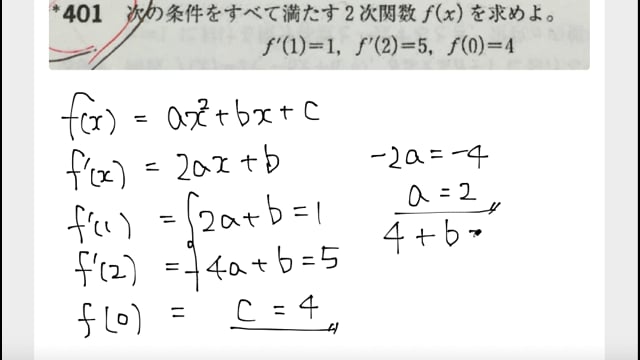 *401 次の条件をすべて満たす2次関数 f(x) を求めよ。
f'(1)=1, f'(2)=5, f(0)=4
f(x) = ax²+bx+c
f'(x) = 2ax+b
f'(1) = 2a+b=1
f'(2) = 4a+b=5
f(0) = c=4
-2a=-4
a=2
4+b